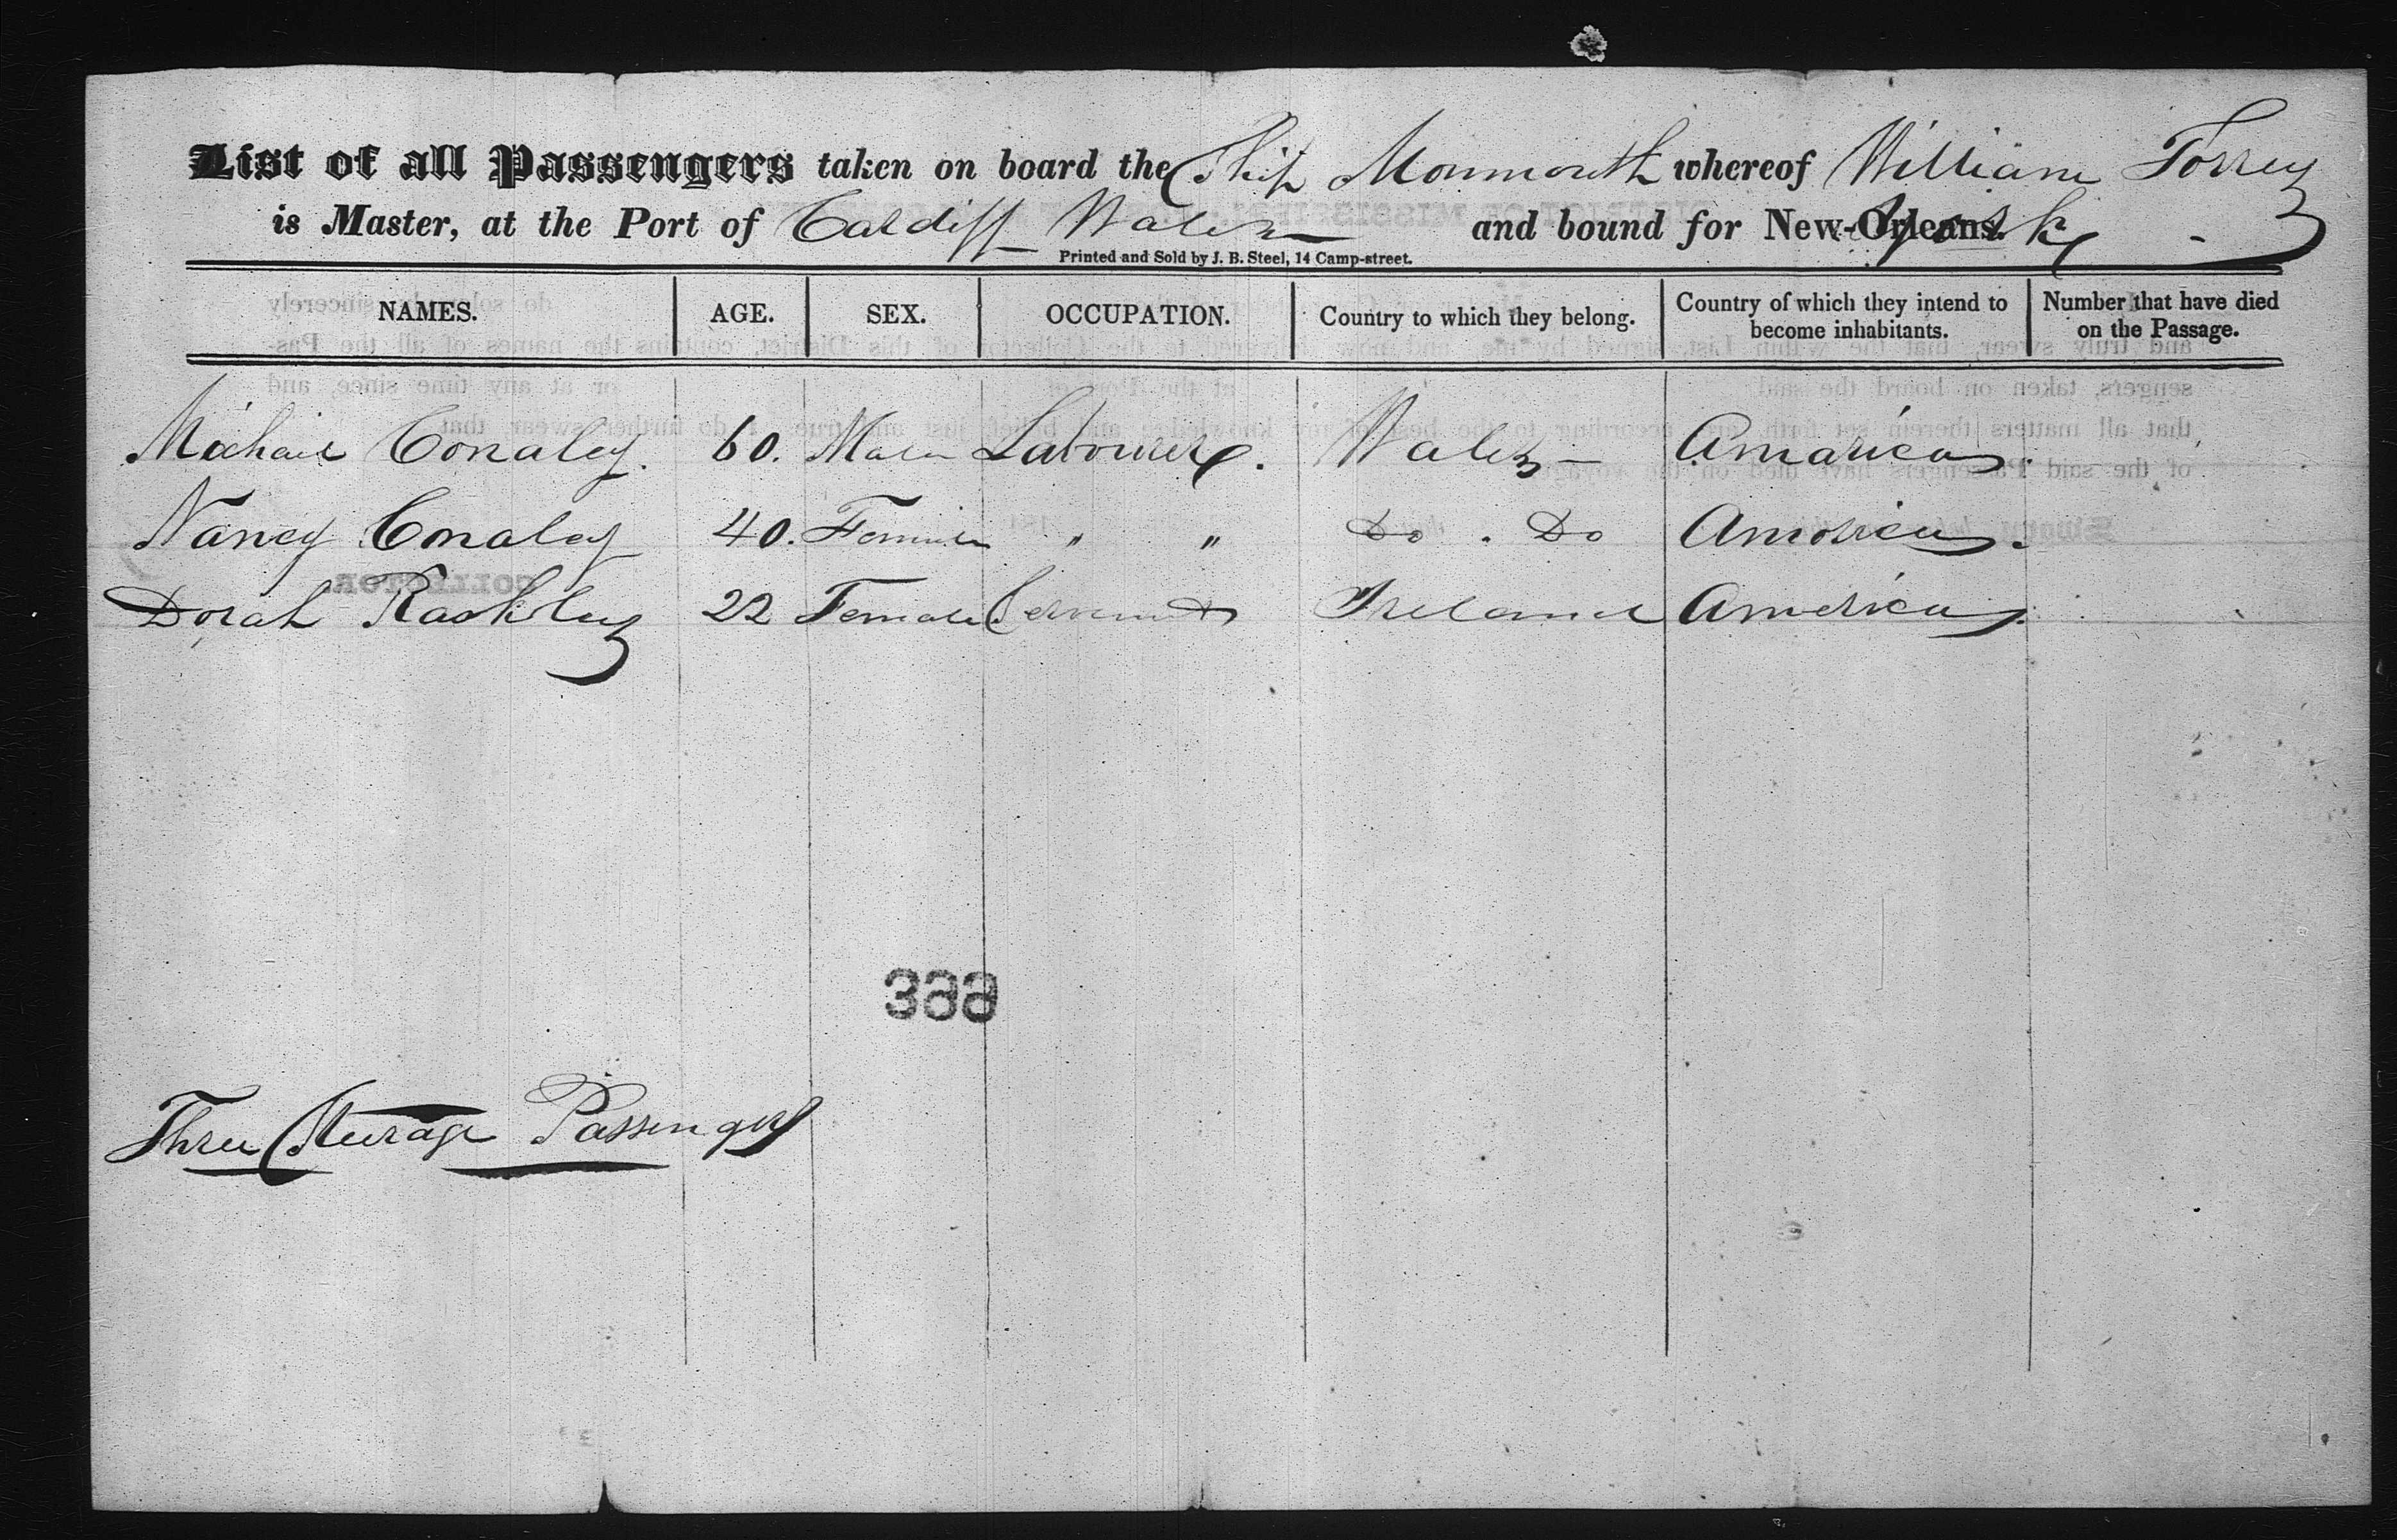 List of all Passengers taken on board the Ship Monmouth whereof William Torrey
is Master, at the Port of Cardiff Wales and bound for New-Orleans. York
Printed and Sold by J. B. Steel, 14 Camp-street.
NAMES. AGE. SEX. OCCUPATION. Country to which they belong. Country of which they intend to become inhabitants. Number that have died on the Passage.
Michael Conaley. 60. Male Labourer. Wales America
Nancy Conaley 40. Female " " Do . Do America.
Dorah 22 Female Servant Ireland America.
Three Steerage Passengers